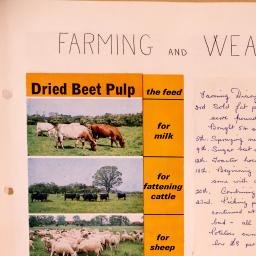 FARMING AND WEA
Dried Beet Pulp
the feed
for
milk
for
fattening
cattle
for
sheep
Farming Diary
3rd Sold fat p
Bought
5th. Spraying
9th. Sugar beet
Tractor hou
Beginning
some with
20th. Continuing
23rd. Picking p
continued
bad - all
Potatoes